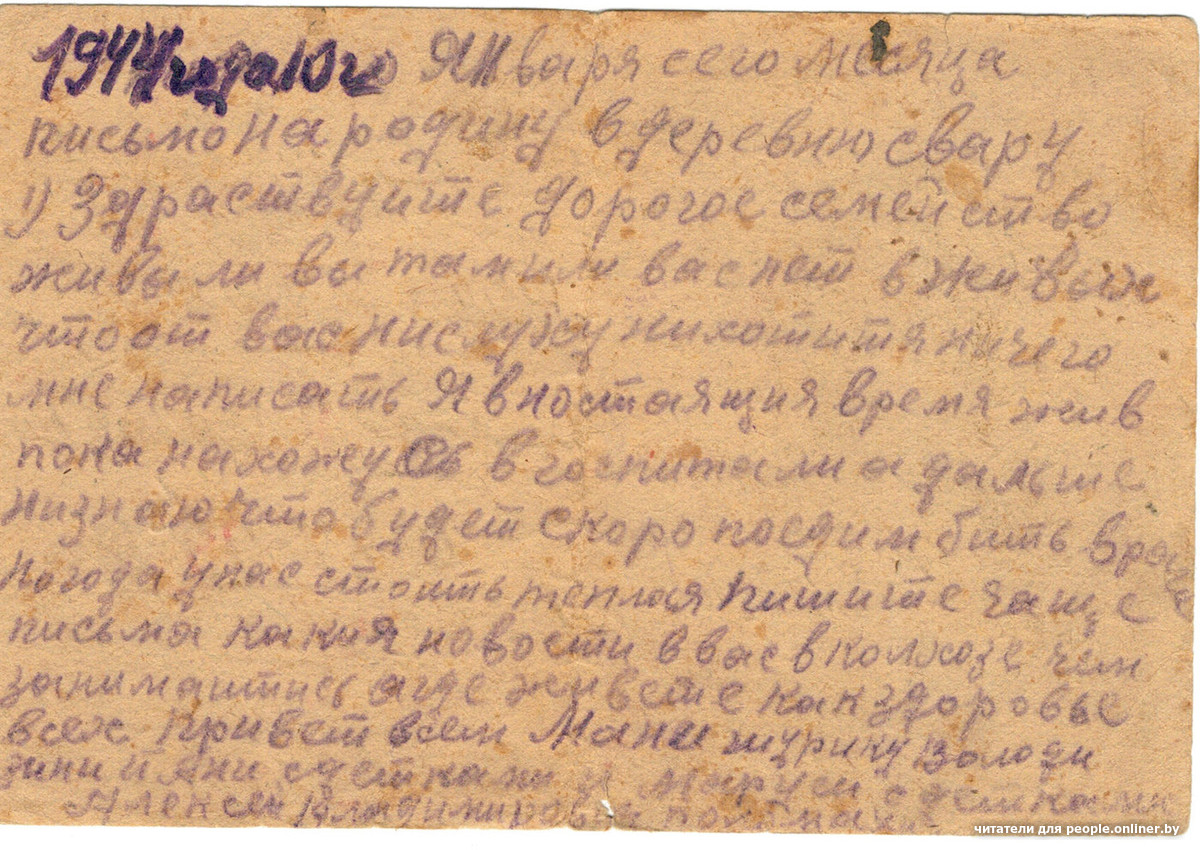 1944 года 10го Января сего месяца
письмо на родину в деревню свару
1) Здраствуйте дорогое семейство
живы ли вы там или вас нет в живых
что от вас нислужу нихотитя ничего
мне написать Я в ностаящия время жив
пока нахожусь в госпитали а дальше
низнаю что будет скоро поедим бить врага
Погода у нас стоить теплая Пишите чаще
письма какия новости в вас в колхозе чем
занимаитись а где живете как здоровье
всех Привет всем Мани шурику Володи
зини с детками Маруси с детками
Алексея Владимировича
читатели для people.onliner.by